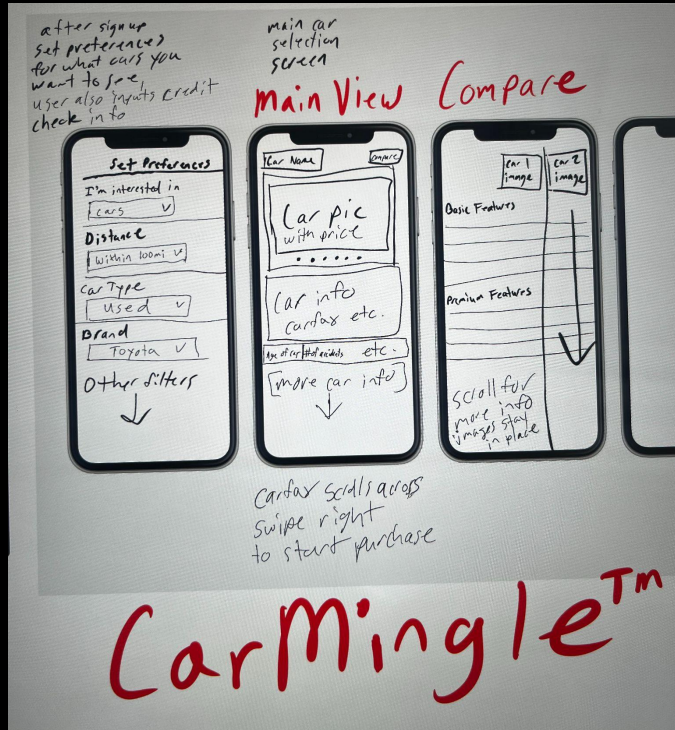 after signup
set preferences
for what cars you
want to see,
user also inputs credit
check info
main car
selection
screen
Main View
Compare
Set Preferences
I'm interested in
cars
Distance
within 100mi
Car Type
Used
Brand
Toyota
Other filters
Car Name
compare
Car pic
with price
Car info
carfax etc.
Age of car
# of accidents
etc.
more car info
Car 1
image
Car 2
image
Basic Features
Premium Features
scroll for
more info
images stay
in place
carfax scrolls across
swipe right
to start purchase
CarMingle™